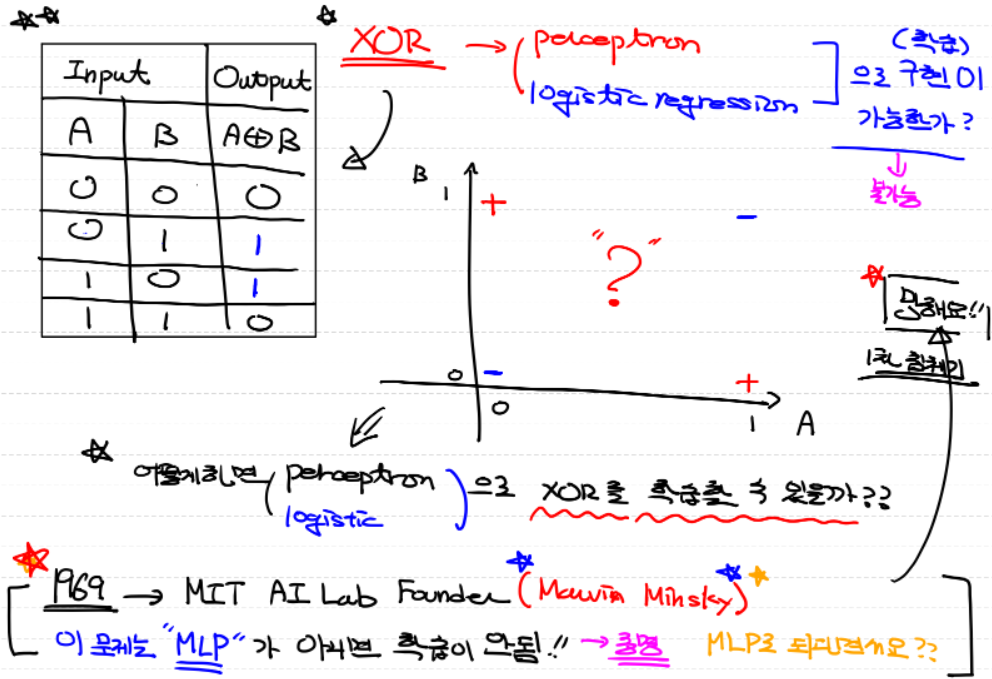 XOR → perceptron
logistic regression
(학습)
으로 구현이
가능한가?
↓
불가능
Input Output
A B A⊕B
0 0 0
0 1 1
1 0 1
1 1 0
B
1
+
−
"?"
0
−
+
0
1
A
망해요!!
1차 침체기
어떻게하면 (perceptron
logistic) 으로 XOR를 학습할 수 있을까??
1969 → MIT AI Lab Founder (Marvin Minsky)
이 문제는 "MLP"가 아니면 학습이 안됨!! → 증명 MLP로 된다면서요??